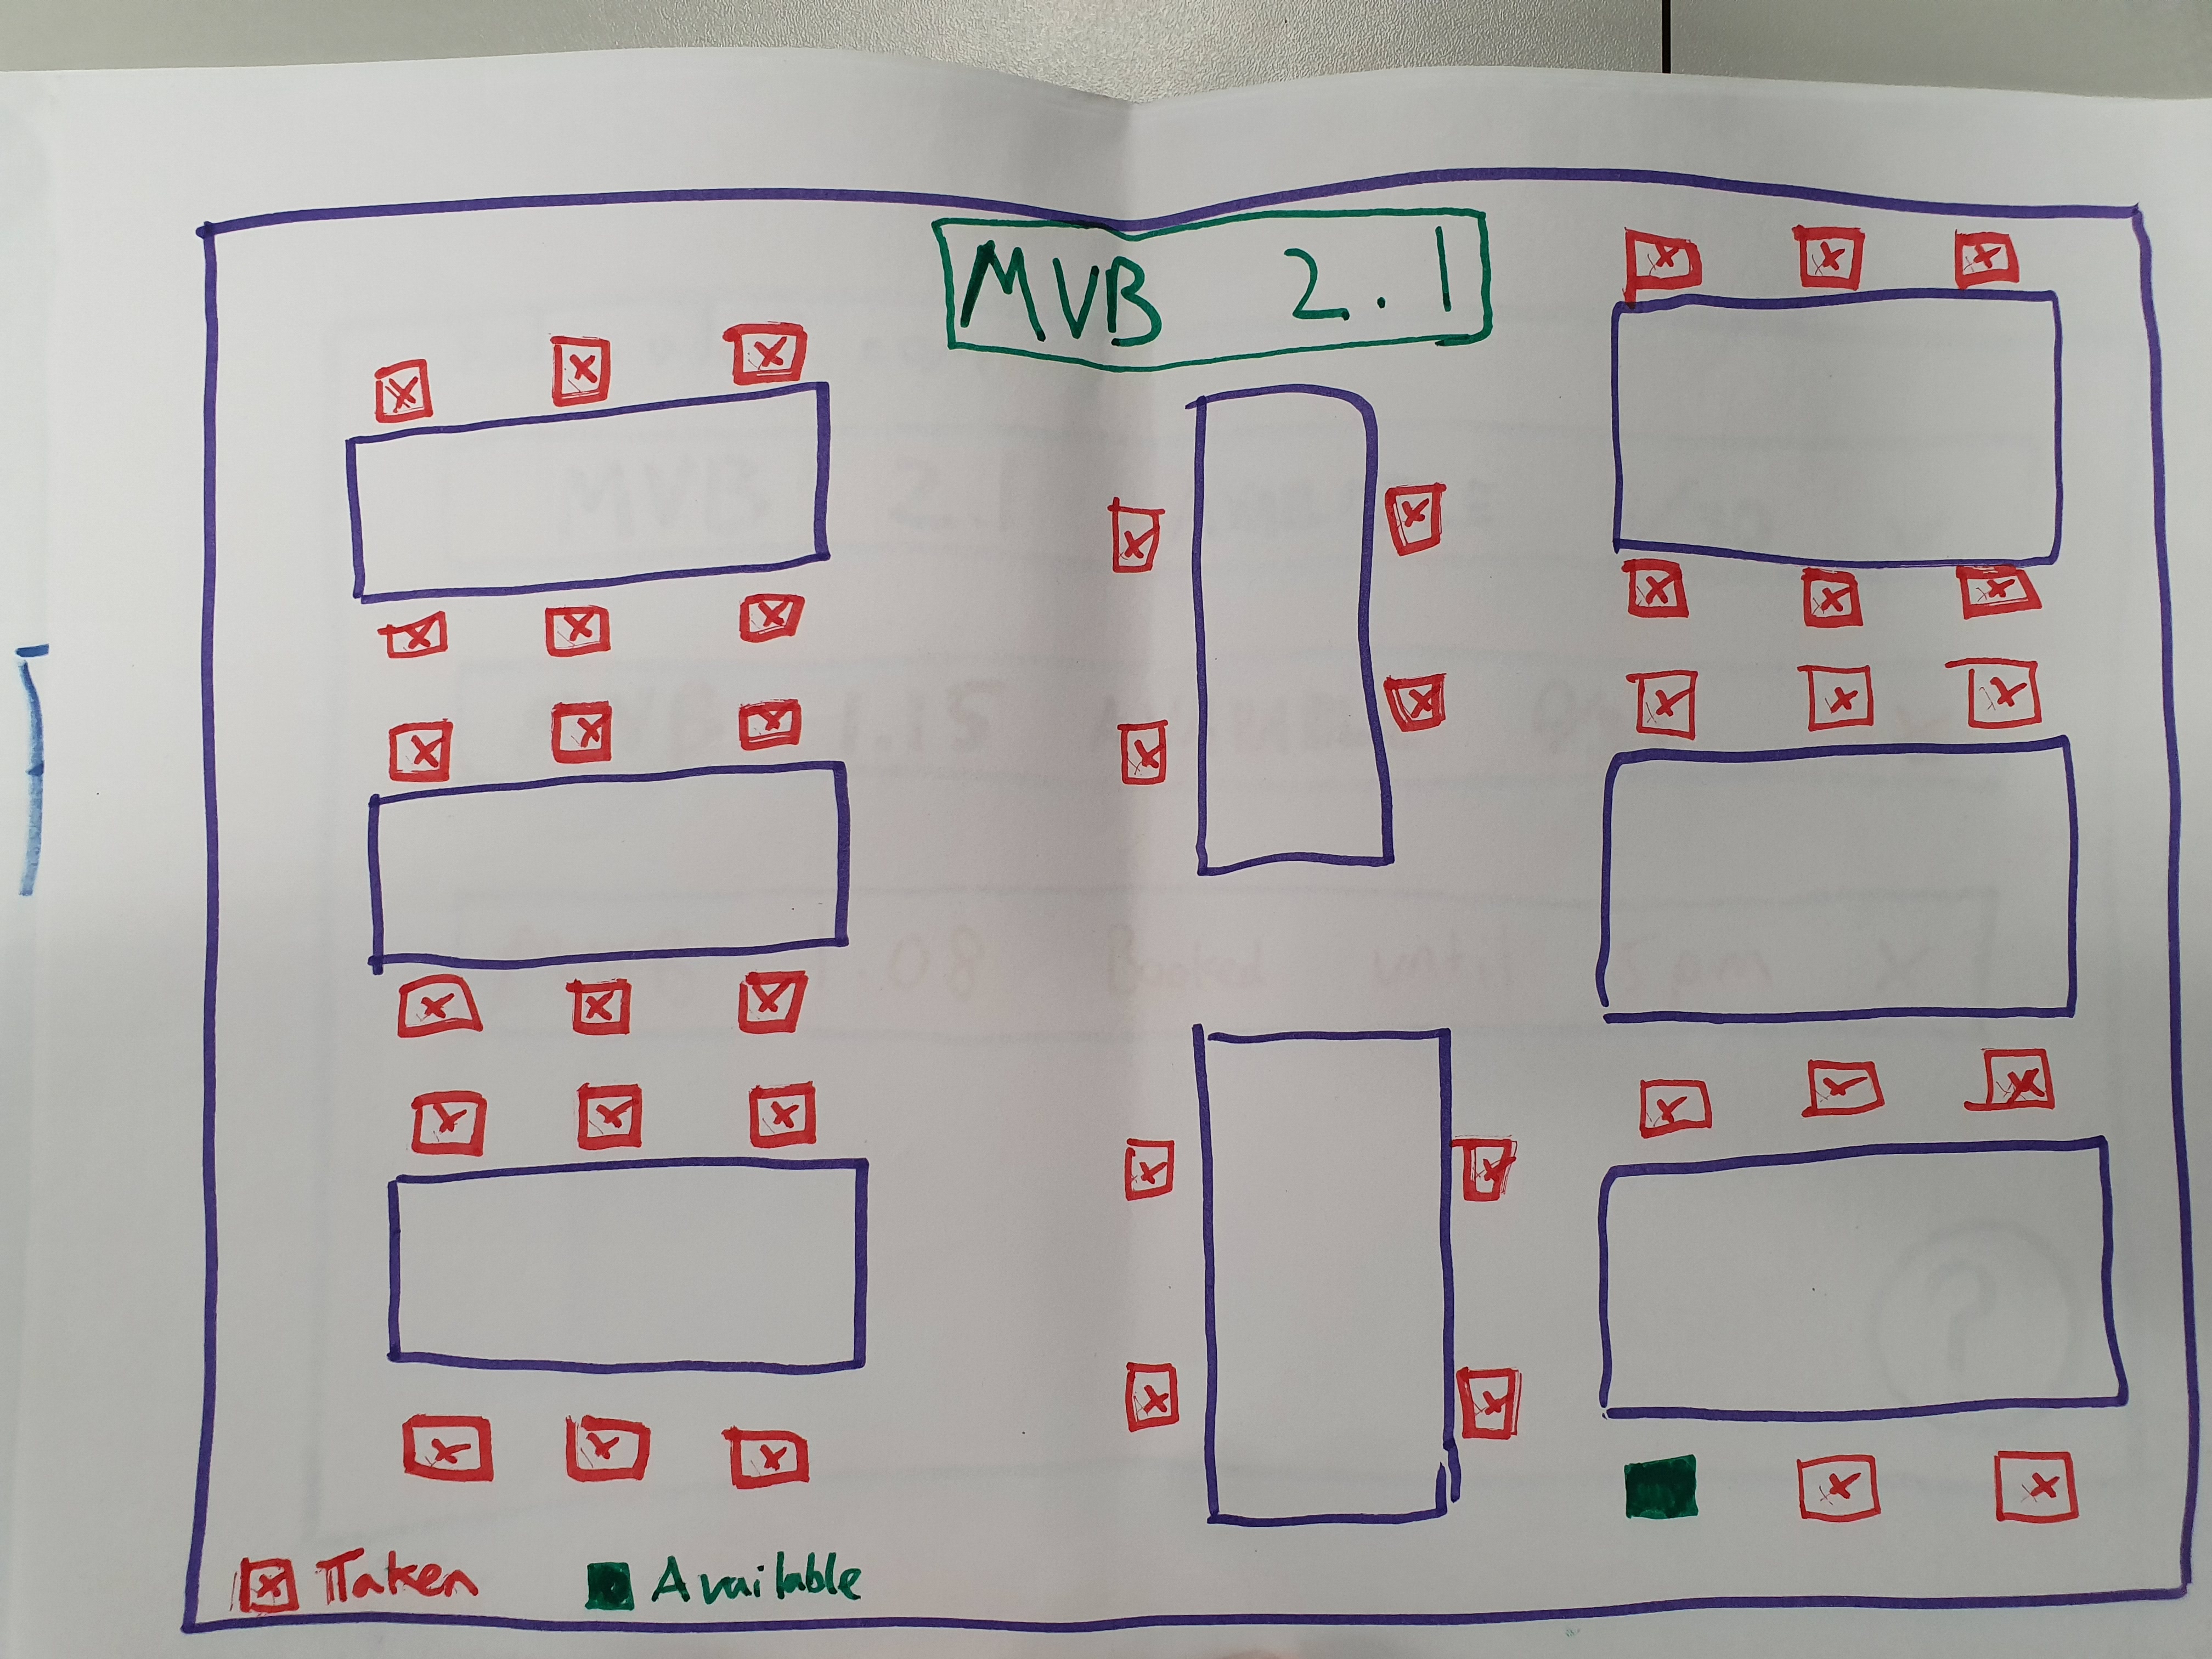 MVB 2.1
Taken
Available